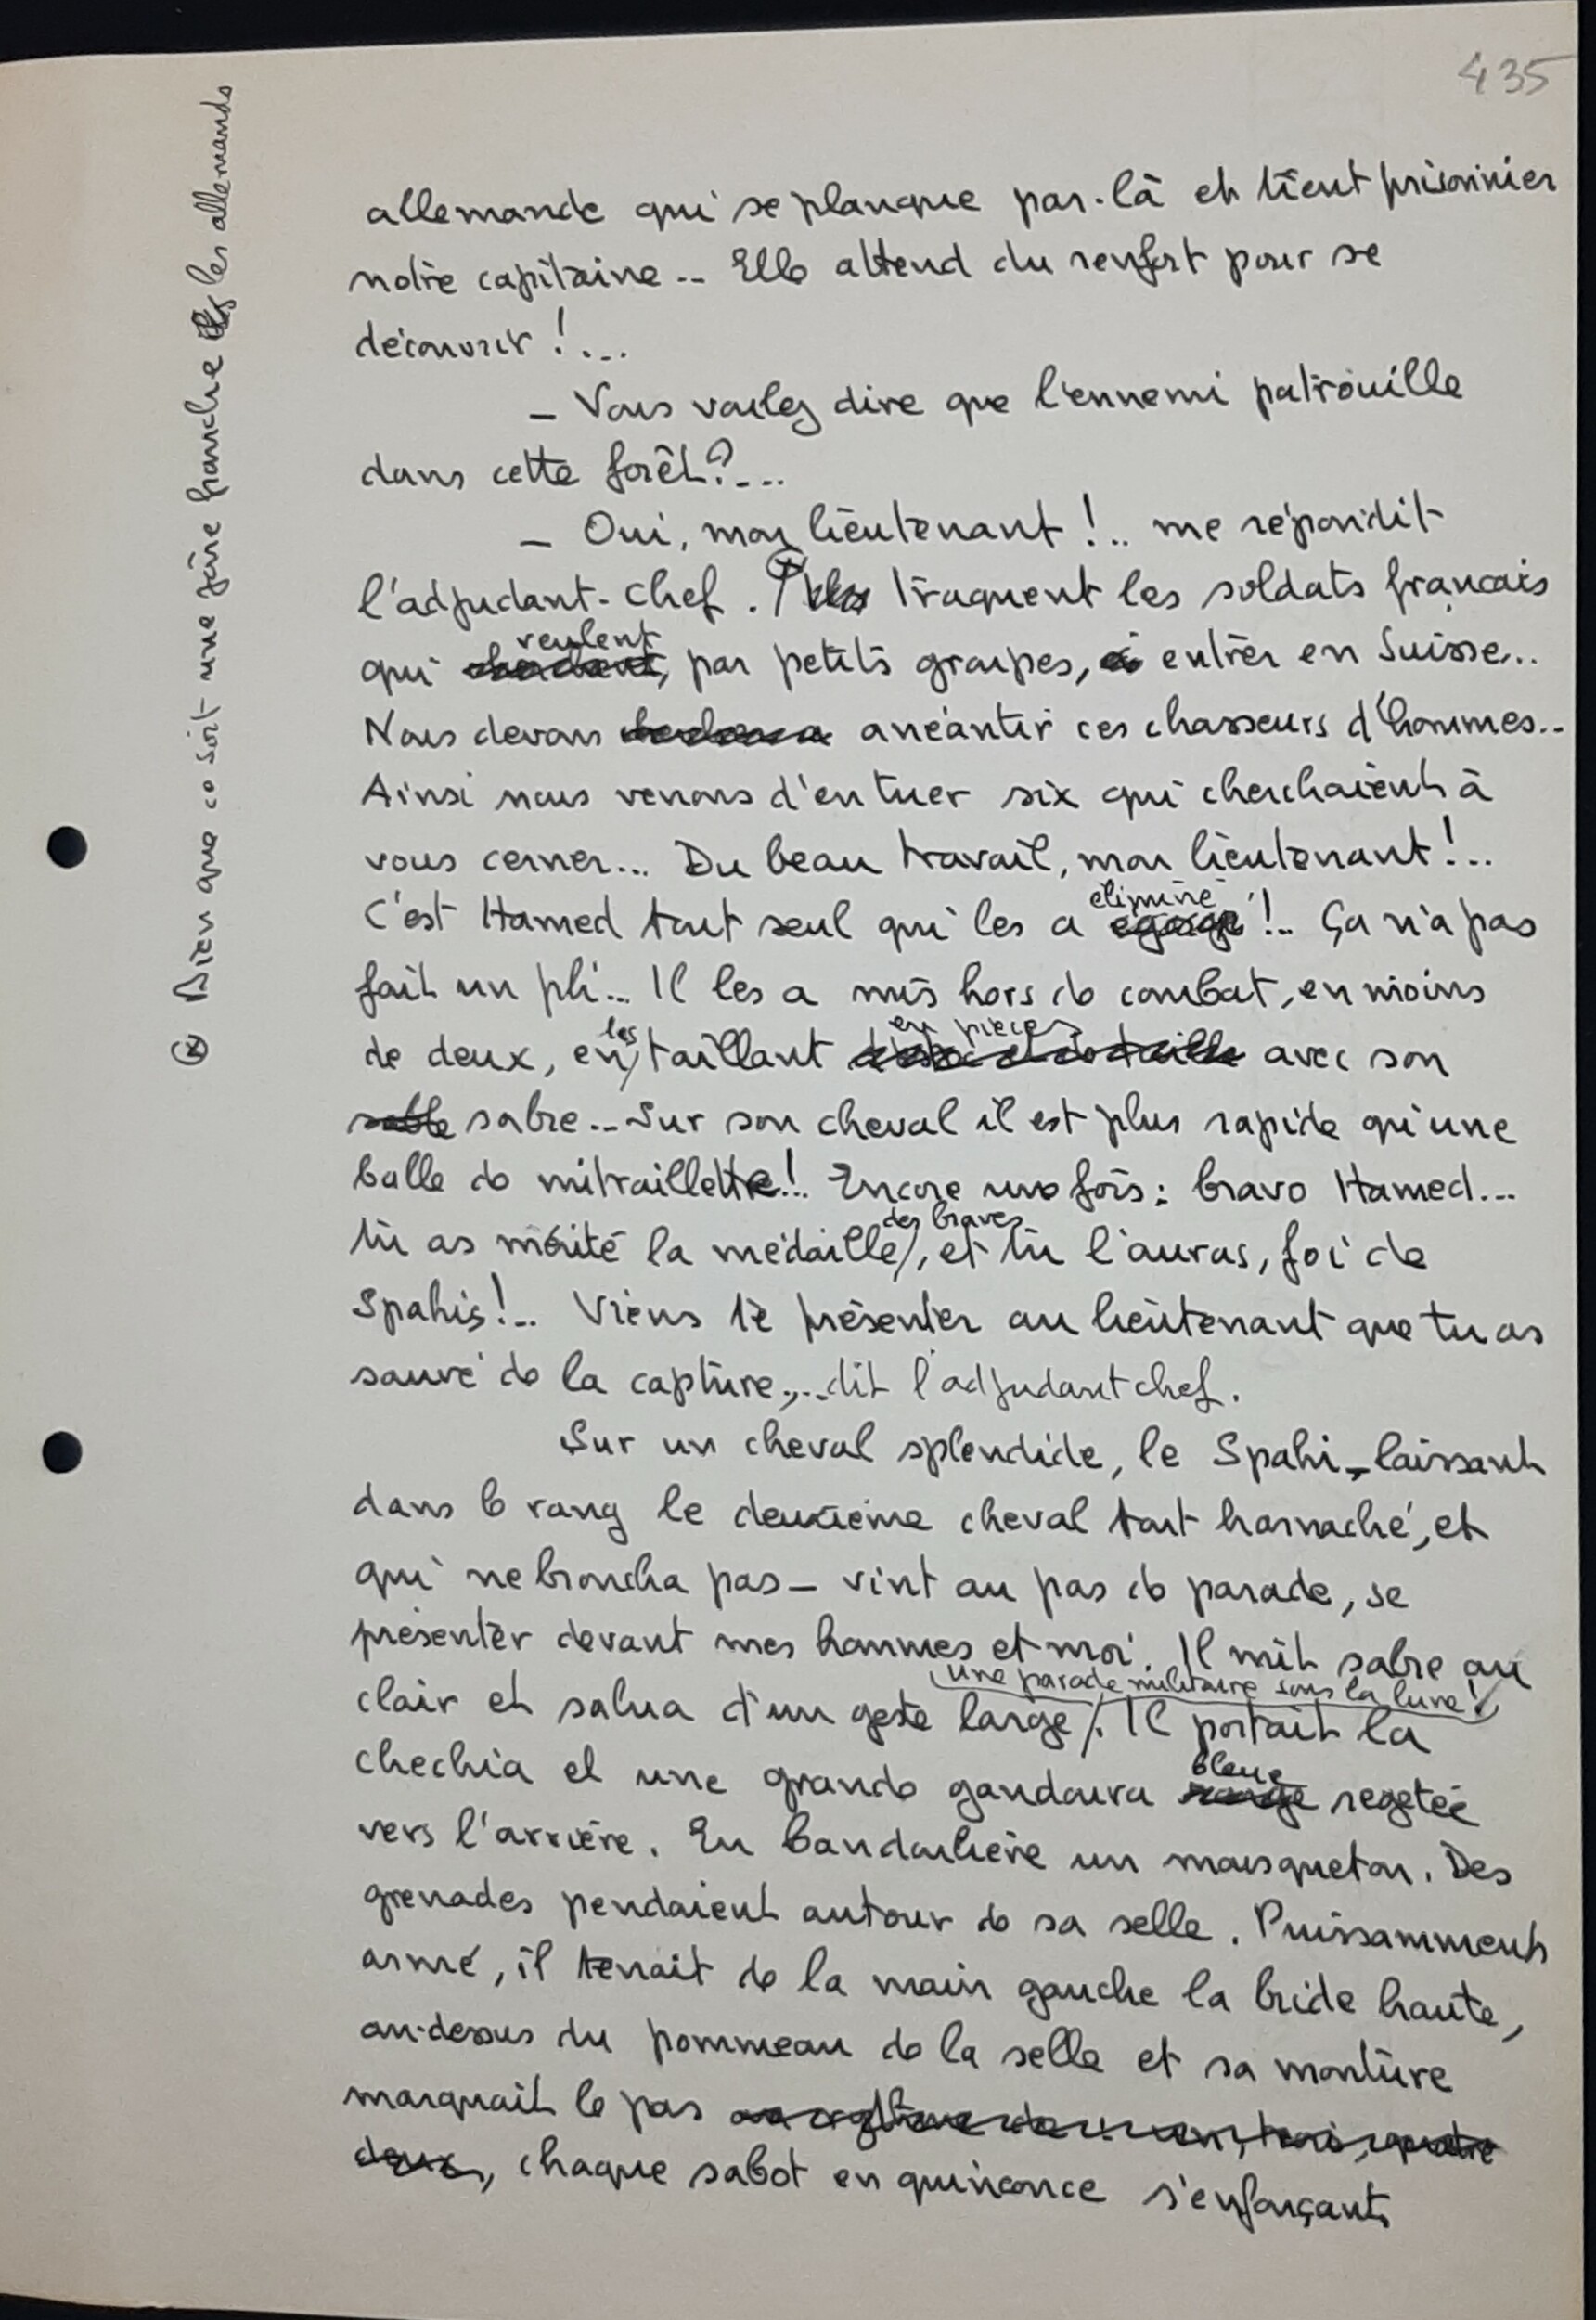 435
allemande qui se planque par-là et tient prisonnier
notre capitaine... Elle attend du renfort pour se
découvrir !...
– Vous voulez dire que l'ennemi patrouille
dans cette forêt ?...
– Oui, mon lieutenant !.. me répondit
l'adjudant-chef. traquent les soldats français
veulent
qui par petits groupes, entrer en Suisse...
Nous devons anéantir ces chasseurs d'hommes..
Ainsi nous venons d'en tuer six qui cherchaient à
vous cerner... Du beau travail, mon lieutenant !..
éliminé
C'est Hamed tout seul qui les a égorgé !.. Ça n'a pas
fait un pli... Il les a mis hors de combat, en moins
les en pièces
de deux, en taillant avec son
sabre... Sur son cheval il est plus rapide qu'une
balle de mitraillette !.. Encore une fois : bravo Hamed...
des braves
tu as mérité la médaille, et tu l'auras, foi de
Spahis !.. Viens te présenter au lieutenant que tu as
sauvé de la capture,... dit l'adjudant chef.
Sur un cheval splendide, le Spahi – laissant
dans le rang le deuxième cheval tout harnaché, et
qui ne broncha pas – vint au pas de parade, se
présenter devant mes hommes et moi. Il mit sabre au
une parade militaire sous la lune !
clair et salua d'un geste large. Il portait la
bleue
chechia et une grande gandoura rouge regetée
vers l'arrière. En bandoulière un mousqueton. Des
grenades pendaient autour de sa selle. Puissamment
armé, il tenait de la main gauche la bride haute,
au-dessus du pommeau de la selle et sa monture
marquait le pas trois, quatre
deux, chaque sabot en quinconce s'enfonçant
⊗ Bien que ce soit une zone franche les allemands